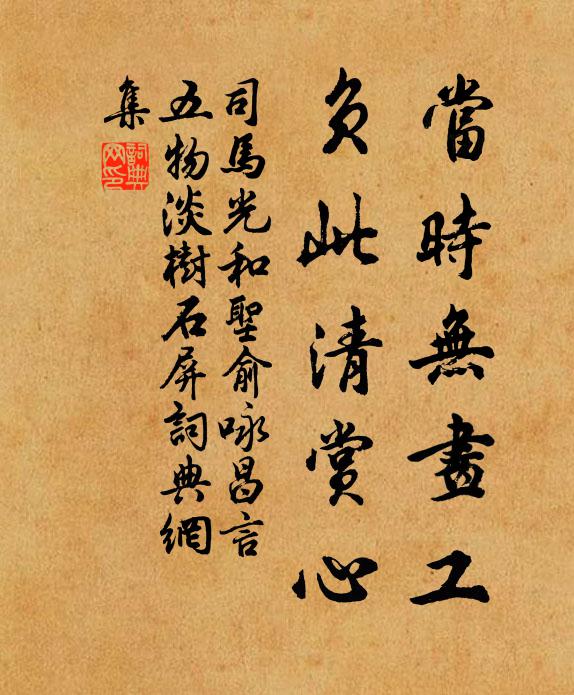 當時無畫工
負此清賞心
司馬光和聖俞咏昌言
五物淡樹石屏詞典網
集
詞典網印